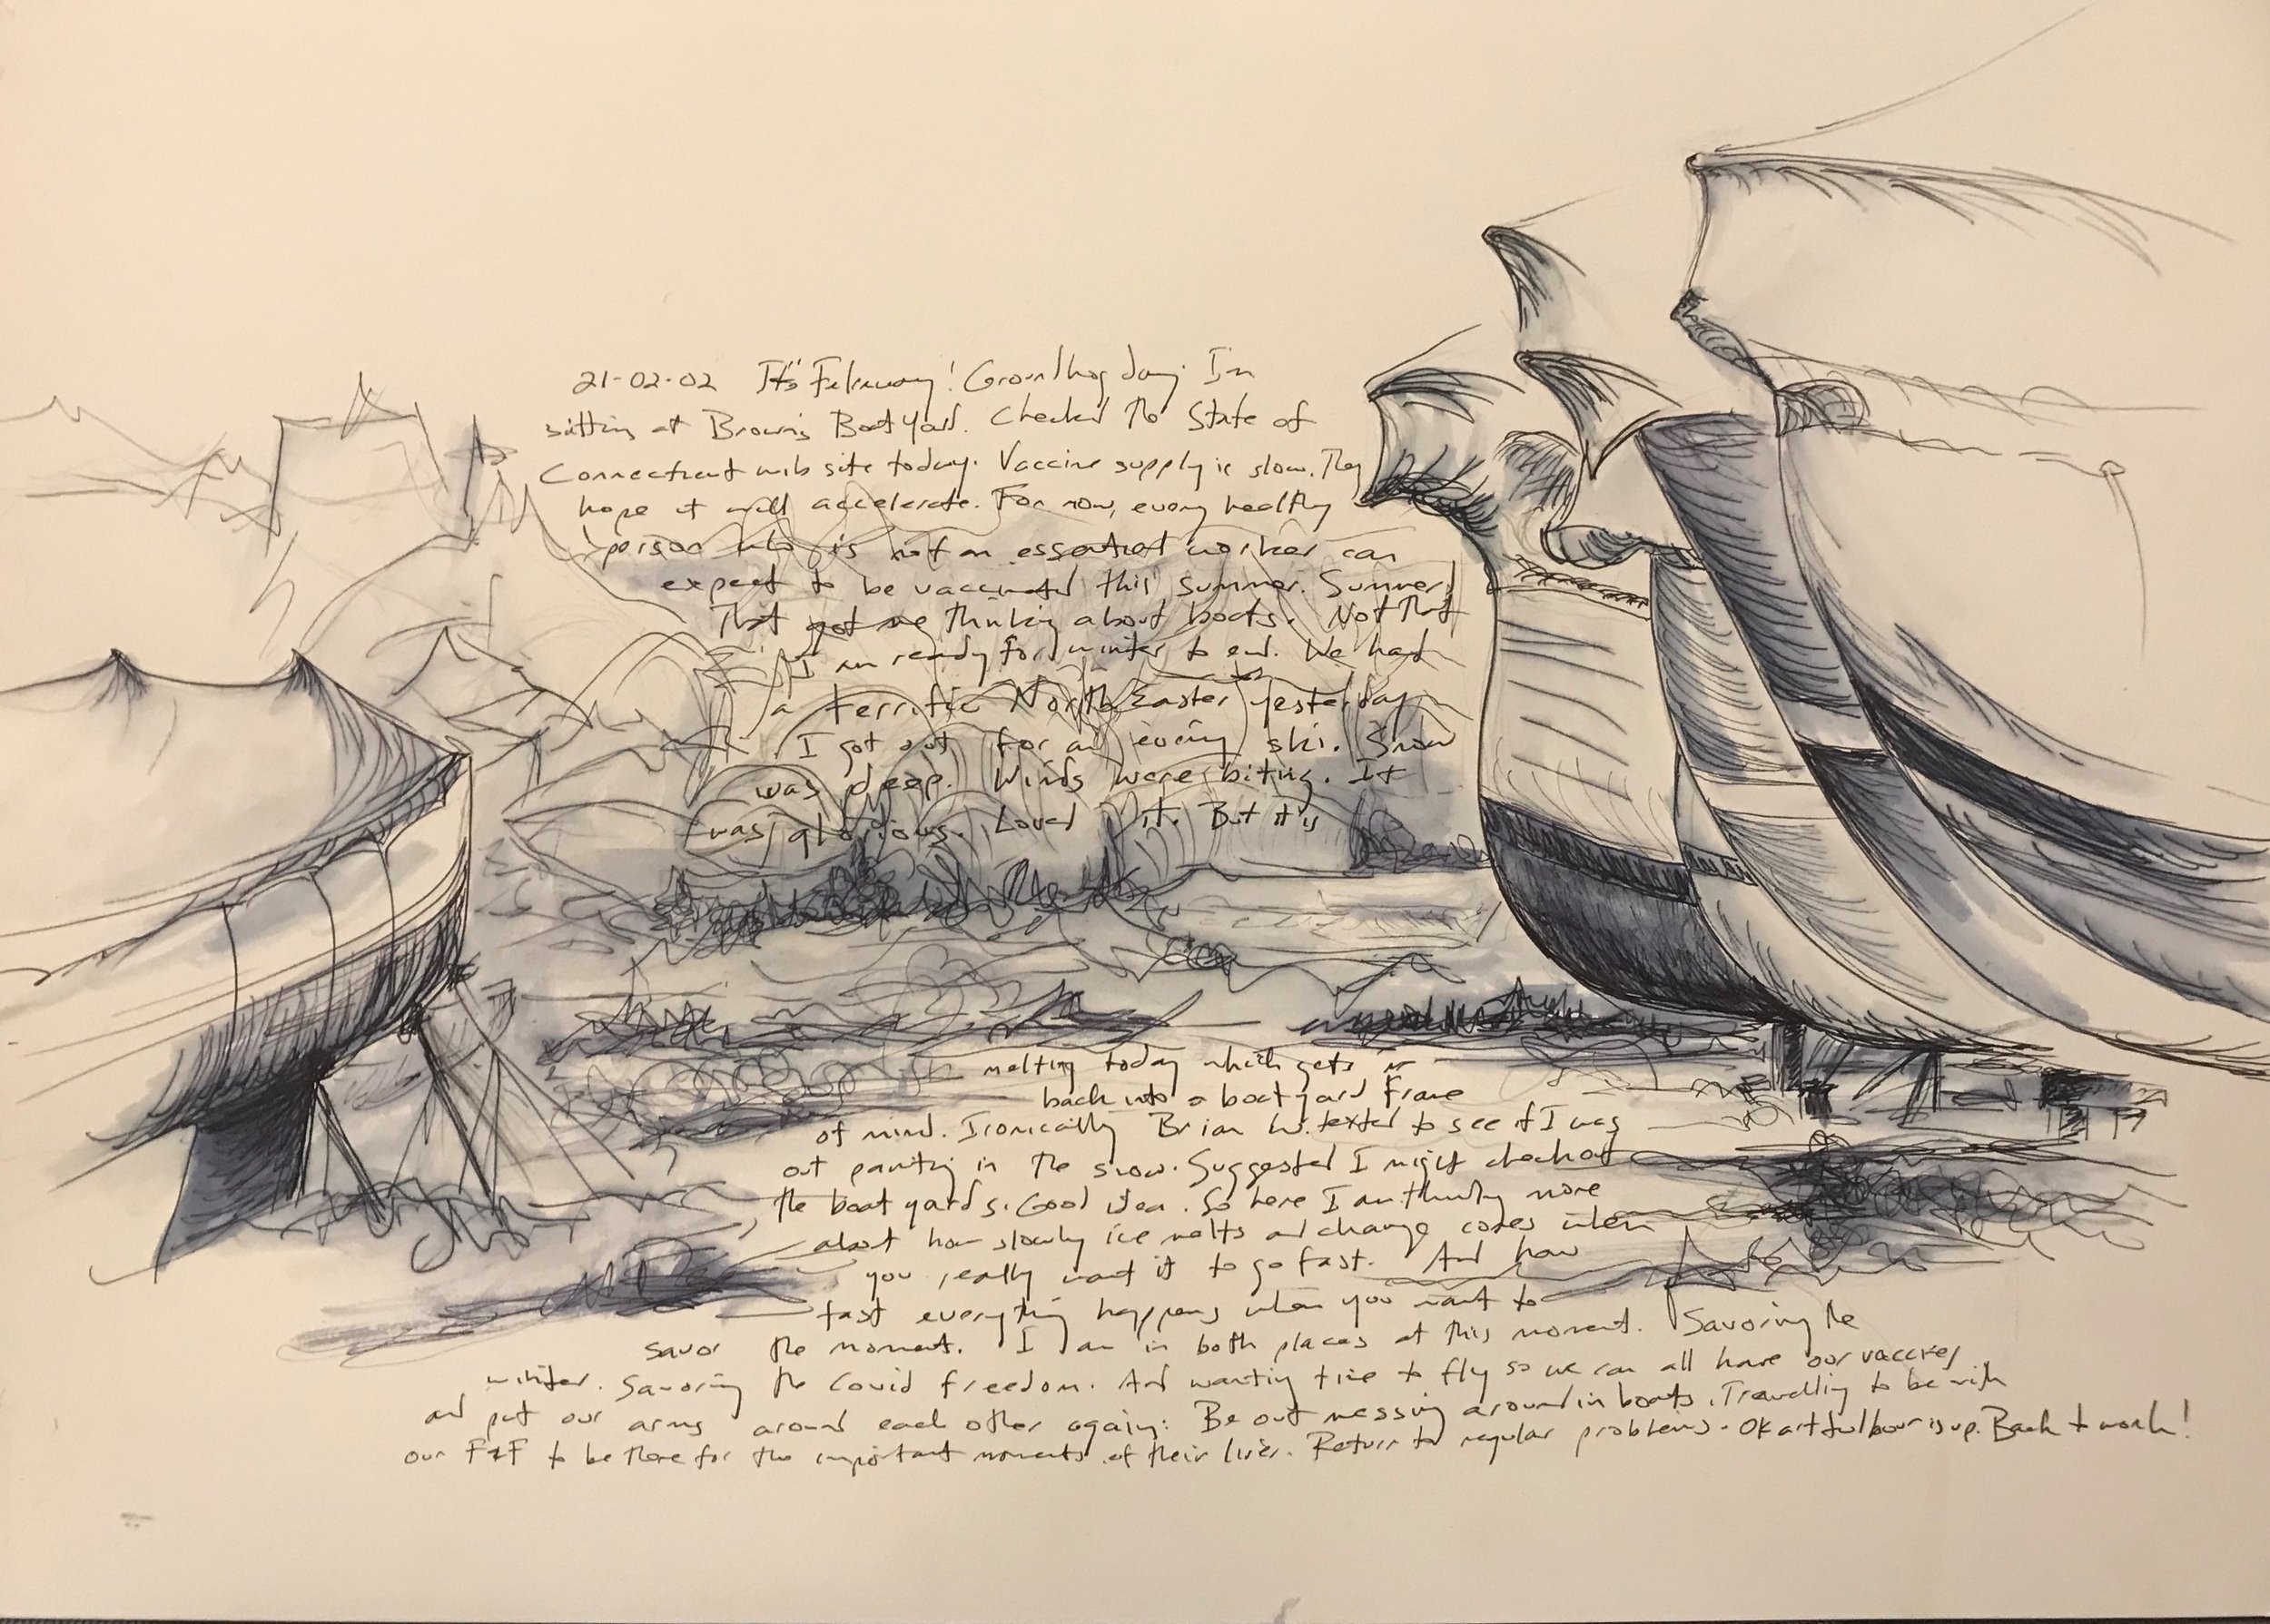 21-02-02 It's February! Groundhog day. I'm
sitting at Brown's Boat Yard. Checked the State of
Connecticut web site today. Vaccine supply is slow. They
hope it will accelerate. For now, every healthy
person who is not an essential worker can
expect to be vaccinated this summer. Summer!
That got me thinking about boats. Not that
I am ready for winter to end. We had
a terrific North Easter yesterday
I got out for an evening ski. Snow
was deep. Winds were biting. It
was glorious. Loved it. But it's
melting today which gets me
back into a boat yard frame
of mind. Ironically Brian W. texted to see if I was
out painting in the snow. Suggested I might check out
the boat yards. Good idea. So here I am thinking more
about how slowly ice melts and change comes when
you really want it to go fast. And how
fast everything happens when you want to
savor the moment. I am in both places at this moment. Savoring the
winter. Savoring the Covid freedom. And wanting time to fly so we can all have our vaccines
and put our arms around each other again. Be out messing around in boats. Travelling to be with
our F+F to be there for the important moments of their lives. Return to regular problems. OK artful hour is up. Back to work!